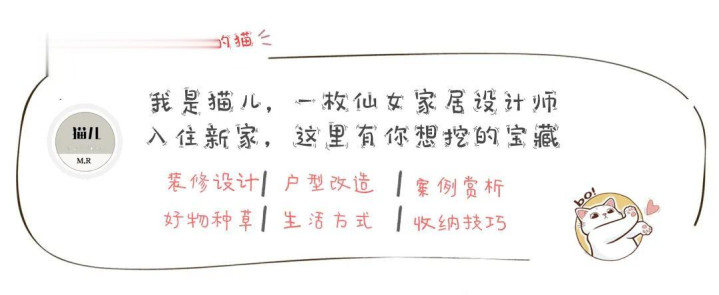 的猫
我是猫儿，一枚仙女家居设计师
入住新家，这里有你想挖的宝藏
猫儿
M.R
装修设计 | 户型改造 | 案例赏析
好物种草 | 生活方式 | 收纳技巧
bo!